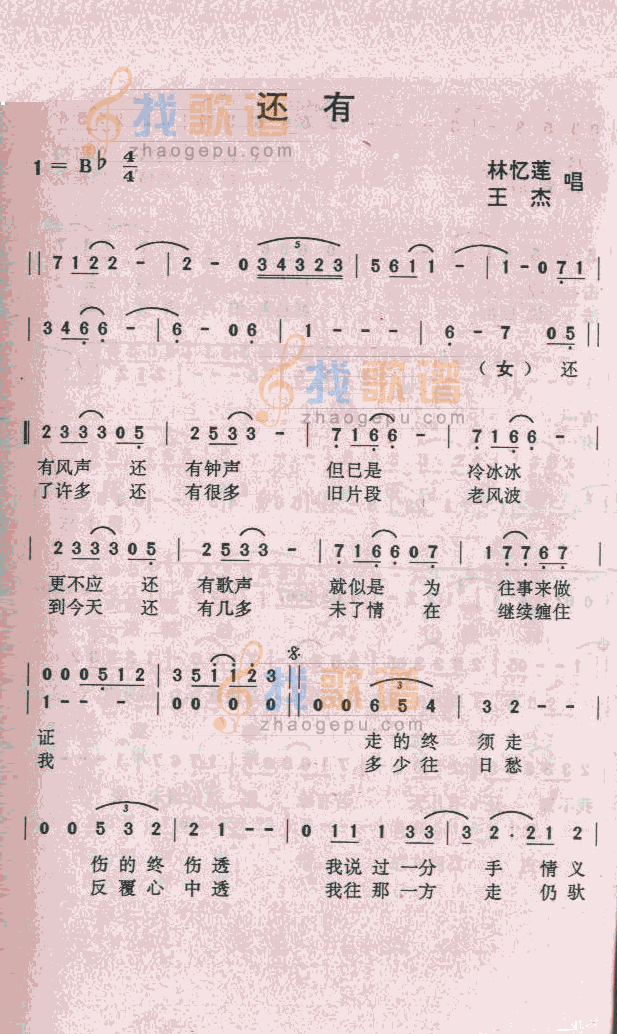 找歌谱
zhaogepu.com
还 有
1 = B♭ 4/4
林忆莲
王 杰 唱
|| 7 1 2 2 - | 2 - 0 3 4 3 2 3 | 5 6 1 1 - | 1 - 0 7 1 |
3 4 6 6 - | 6 - 0 6 | 1 - - - | 6 - 7 0 5 ||
(女) 还
找歌谱
zhaogepu.com
2 3 3 3 0 5 | 2 5 3 3 - | 7 1 6 6 - | 7 1 6 6 - |
有风声 还 有钟声 但已是 冷冰冰
了许多 还 有很多 旧片段 老风波
| 2 3 3 3 0 5 | 2 5 3 3 - | 7 1 6 6 0 7 | 1 7 7 6 7 |
更不应 还 有歌声 就似是 为 往事来做
到今天 还 有几多 未了情 在 继续缠住
找歌谱
zhaogepu.com
| 0 0 0 5 1 2 | 3 5 1 1 2 3
| 1 - - - | 0 0 0 0 | 0 0 6 5 4 | 3 2 - - |
证 走的终 须走
我 多少往 日愁
| 0 0 5 3 2 | 2 1 - - | 0 1 1 1 3 3 | 3 2 . 2 1 2 |
伤的终 伤透 我说过一分 手 情义
反覆心 中透 我往那一方 走 仍驮